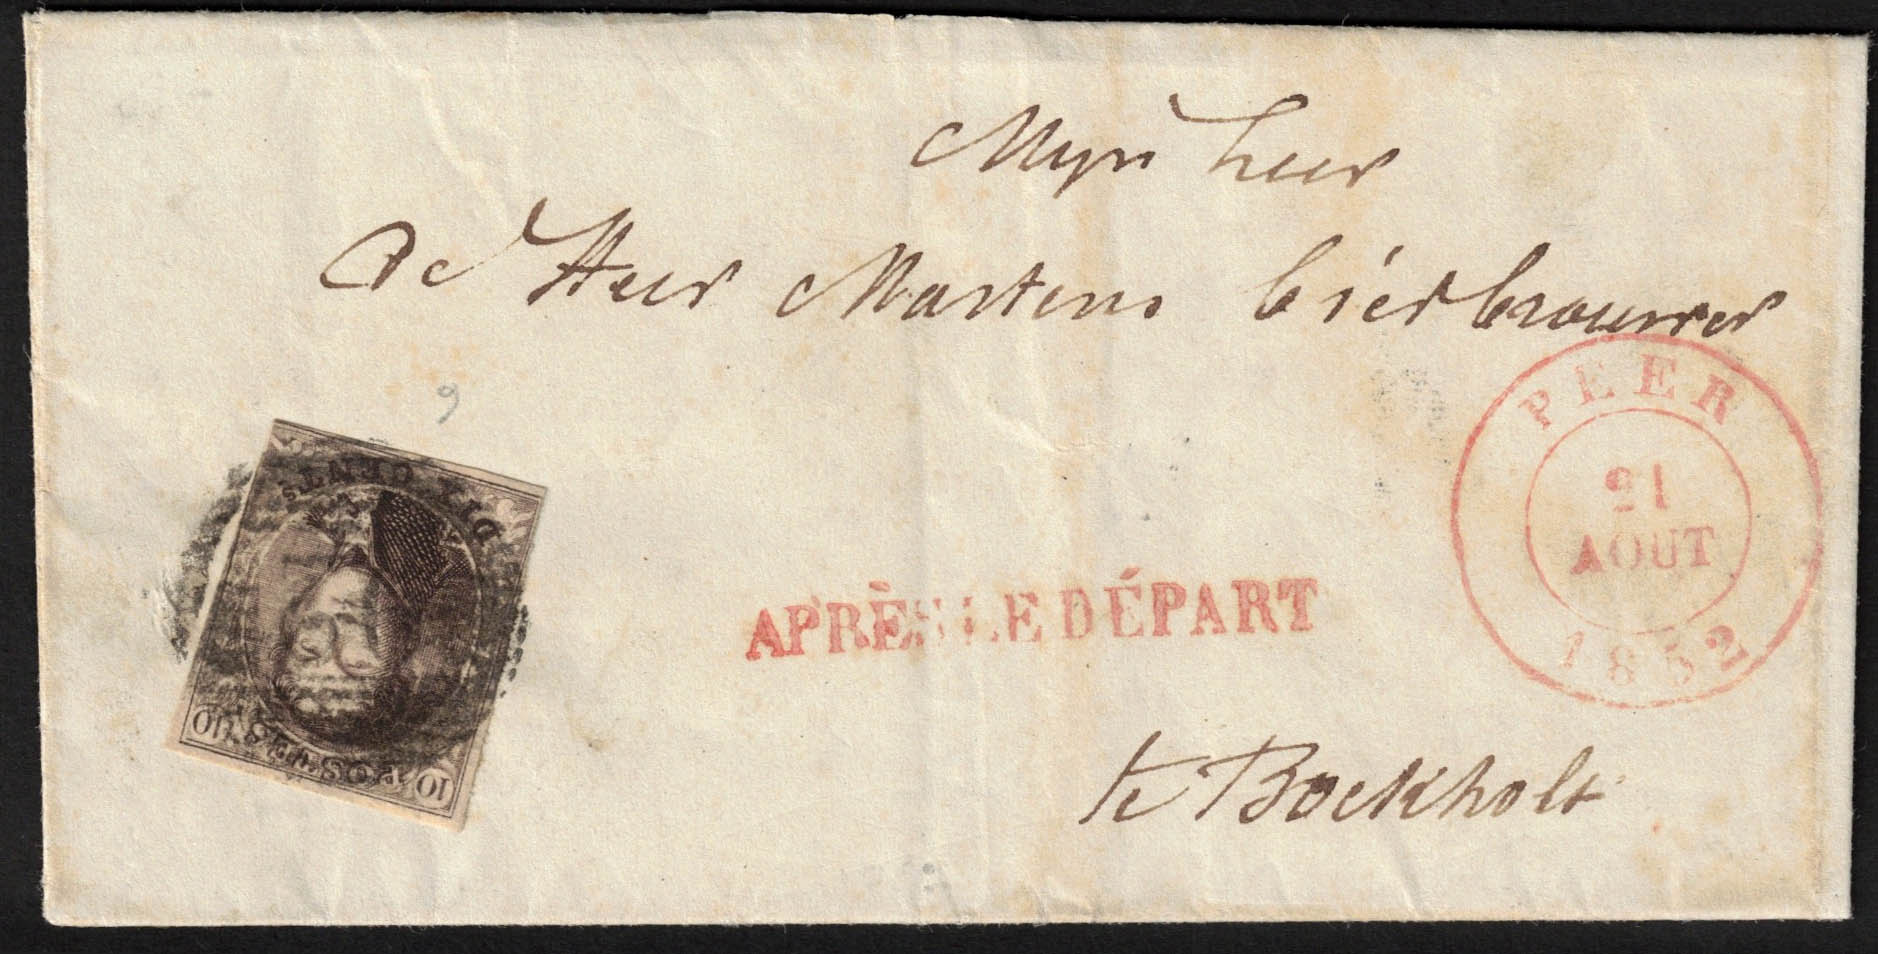 Myn heer
De Heer Martens bierbrouwer
9
PEER
21
AOUT
1852
DIX CENTS
POSTES
10
10
APRÈS LE DÉPART
te Bockholt